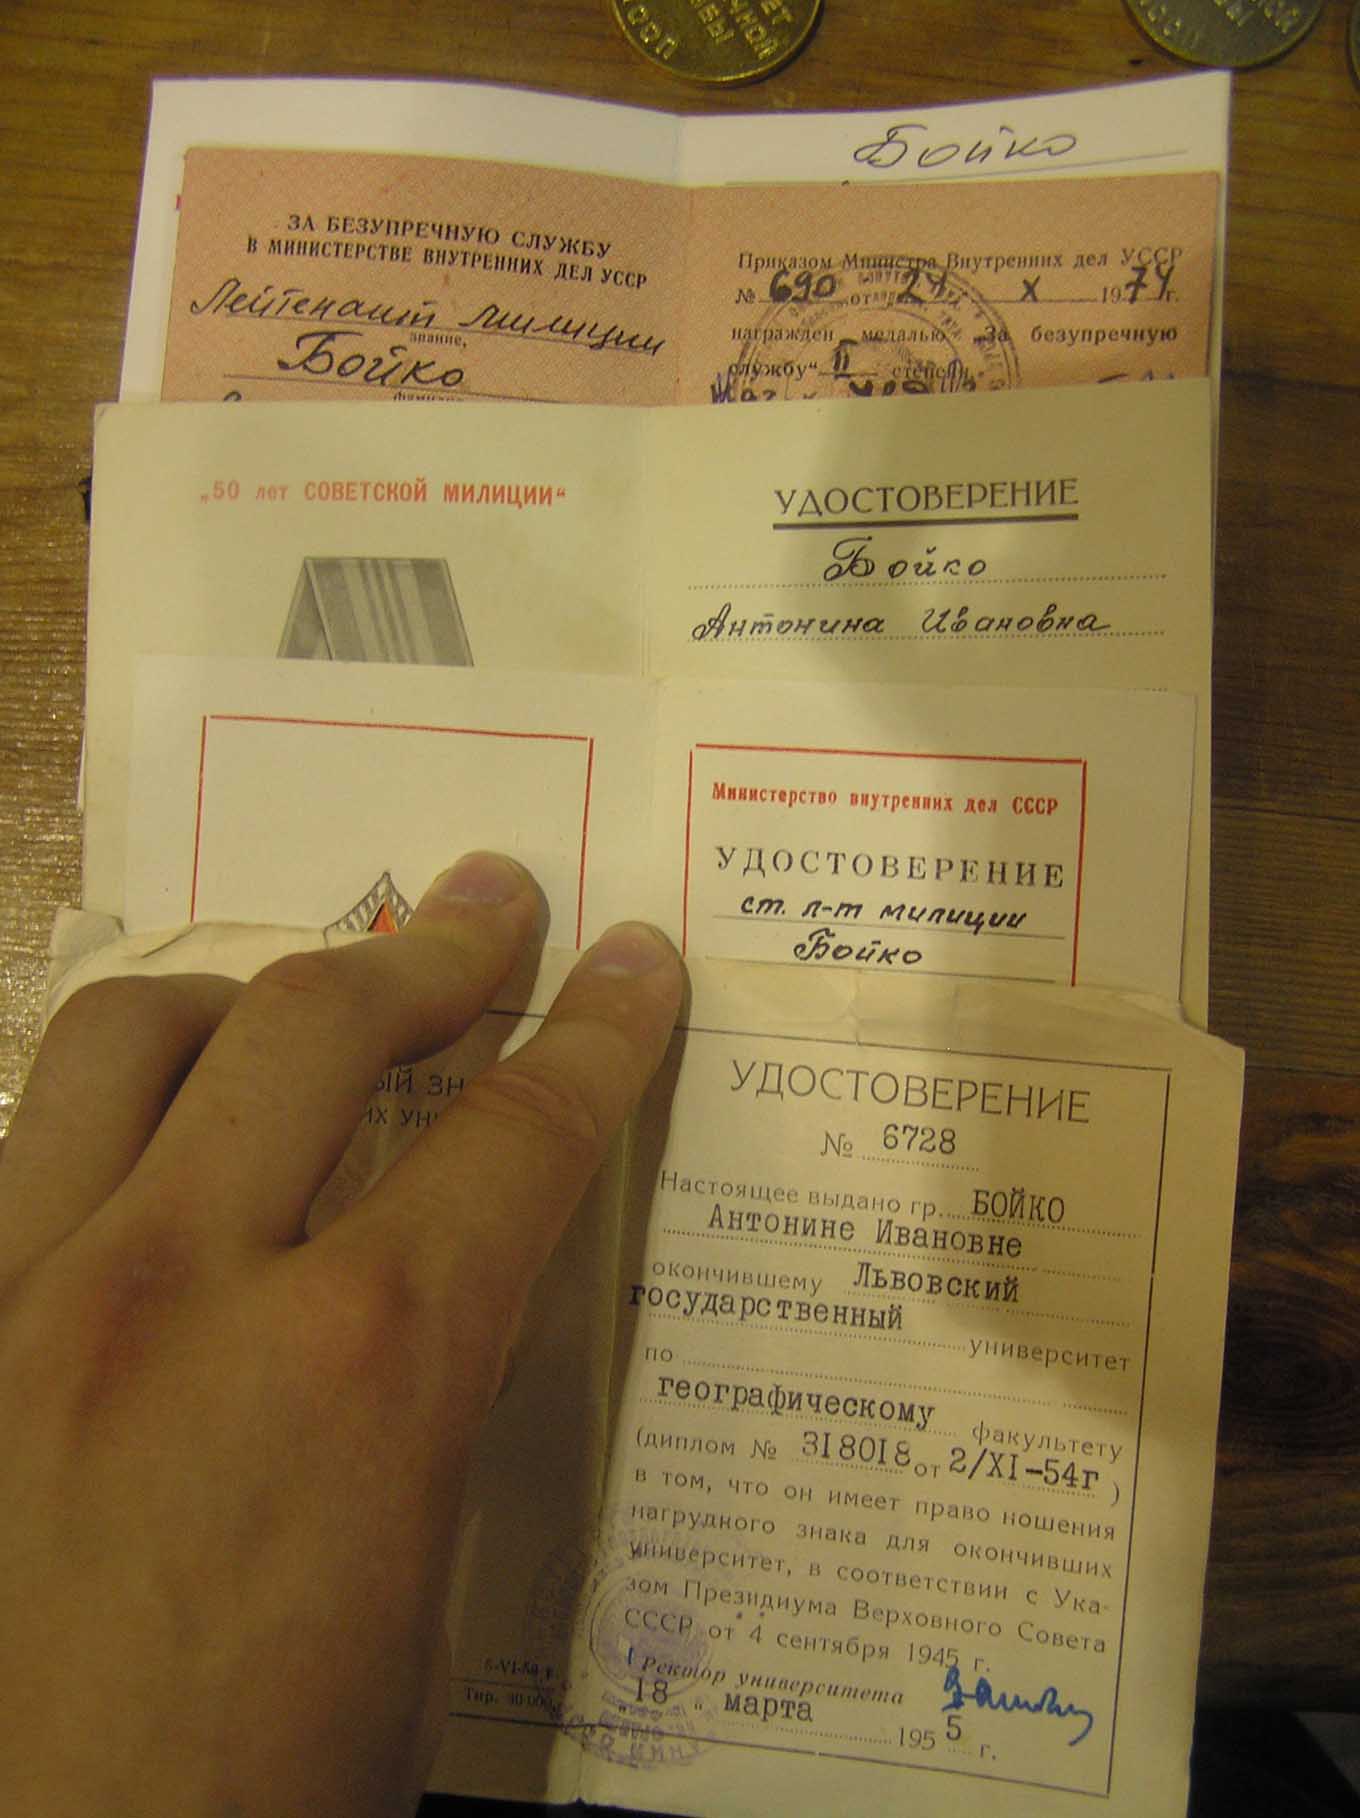 ЛЕТ
ЧНОЙ
БЫ
Бойко
ЗА БЕЗУПРЕЧНУЮ СЛУЖБУ
В МИНИСТЕРСТВЕ ВНУТРЕННИХ ДЕЛ УССР
Лейтенант милиции
звание,
Бойко
Приказом Министра Внутренних дел УССР
№ 690 от 24 X 1974 г.
награжден медалью „За безупречную
службу“ II степени
„50 лет СОВЕТСКОЙ МИЛИЦИИ“
УДОСТОВЕРЕНИЕ
Бойко
Антонина Ивановна
Министерство внутренних дел СССР
УДОСТОВЕРЕНИЕ
ст. л-т милиции
Бойко
ЫЙ ЗН
ИХ УН
УДОСТОВЕРЕНИЕ
№ 6728
Настоящее выдано гр. БОЙКО
Антонине Ивановне
окончившему Львовский
государственный
университет
по
географическому факультету
(диплом № 318018 от 2/XI-54г )
в том, что он имеет право ношения
нагрудного знака для окончивших
университет, в соответствии с Ука-
зом Президиума Верховного Совета
СССР от 4 сентября 1945 г.
Ректор университета
„18 “ марта 1955 г.
Тир. 30 000